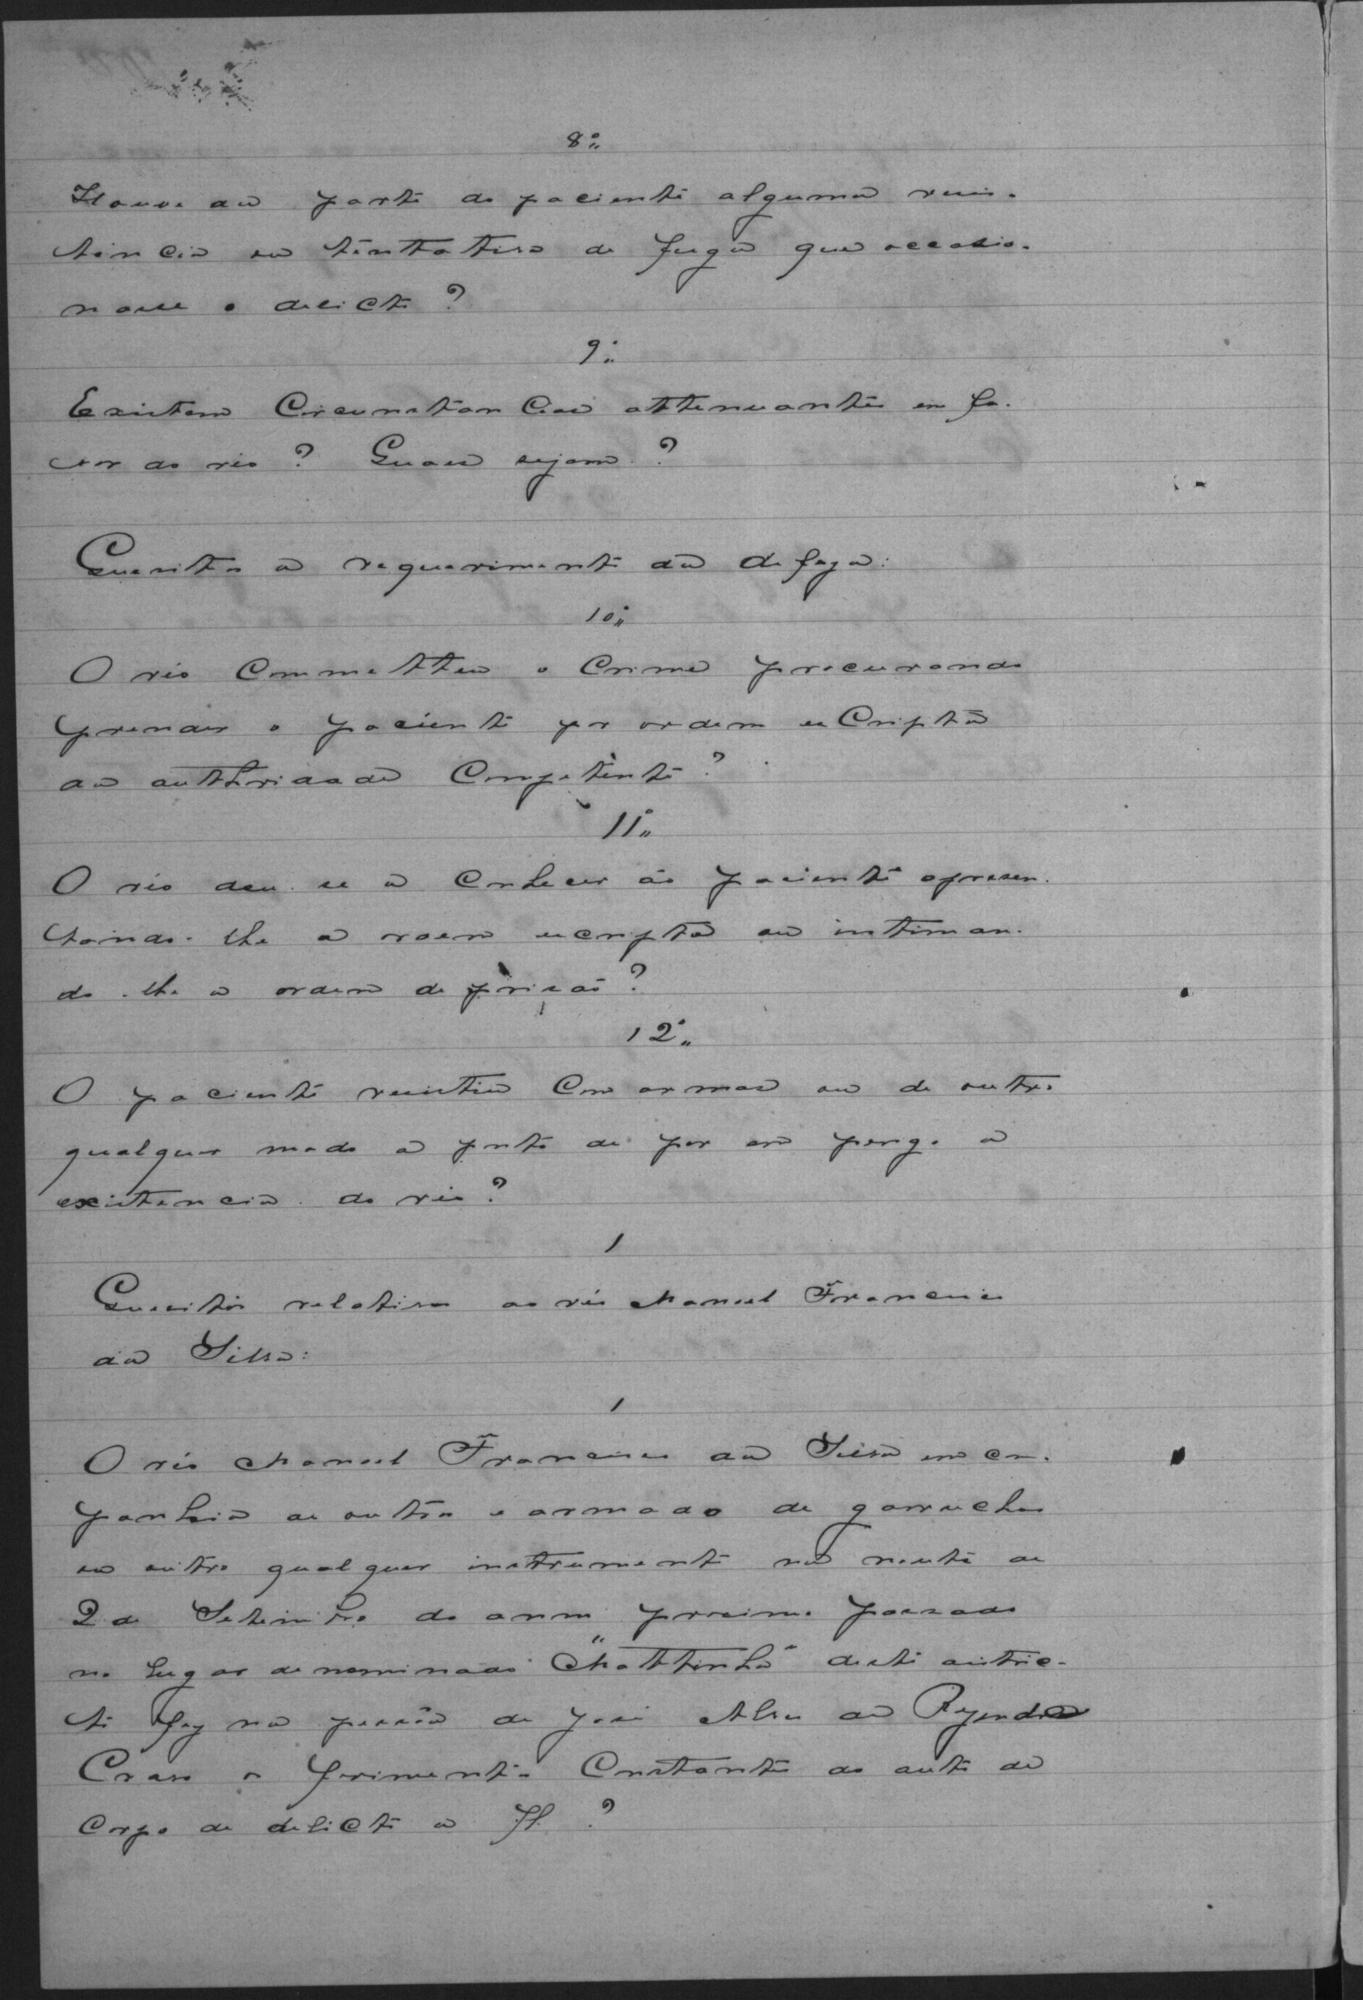 8º
Houve da parte do paciente alguma resis-
tencia ou tentativa de fuga que occasio-
nasse o delicto?
9º
Existem Circunstancias attenuantes em fa-
vor do réo? Quaes sejam?
Quesitos a requerimento da defeza:
10º
O réo Commetteu o Crime procurando
prender o paciente por ordem escripta
da authoridade Competente?
11º
O réo deu-se a Conhecer ao paciente apresen-
tando-lhe a ordem escripta ou intiman-
do-lhe a ordem de prisão?
12º
O paciente resistiu Com armas ou de outro
qualquer modo a ponto de por em perigo a
existencia do réo?
1
Quesitos relativos ao réo Manoel Francisco
da Silva:
1
O réo Manoel Francisco da Silva em com-
panhia de outros e armado de garrucha
ou outro qualquer instrumento na noute de
2 de Setembro do anno proximo passado
no lugar denominado "Mattinha" deste distric-
to fez na pessôa de José Alves de Rezende
o ferimento Constante do auto de
Corpo de delicto a fl. ?